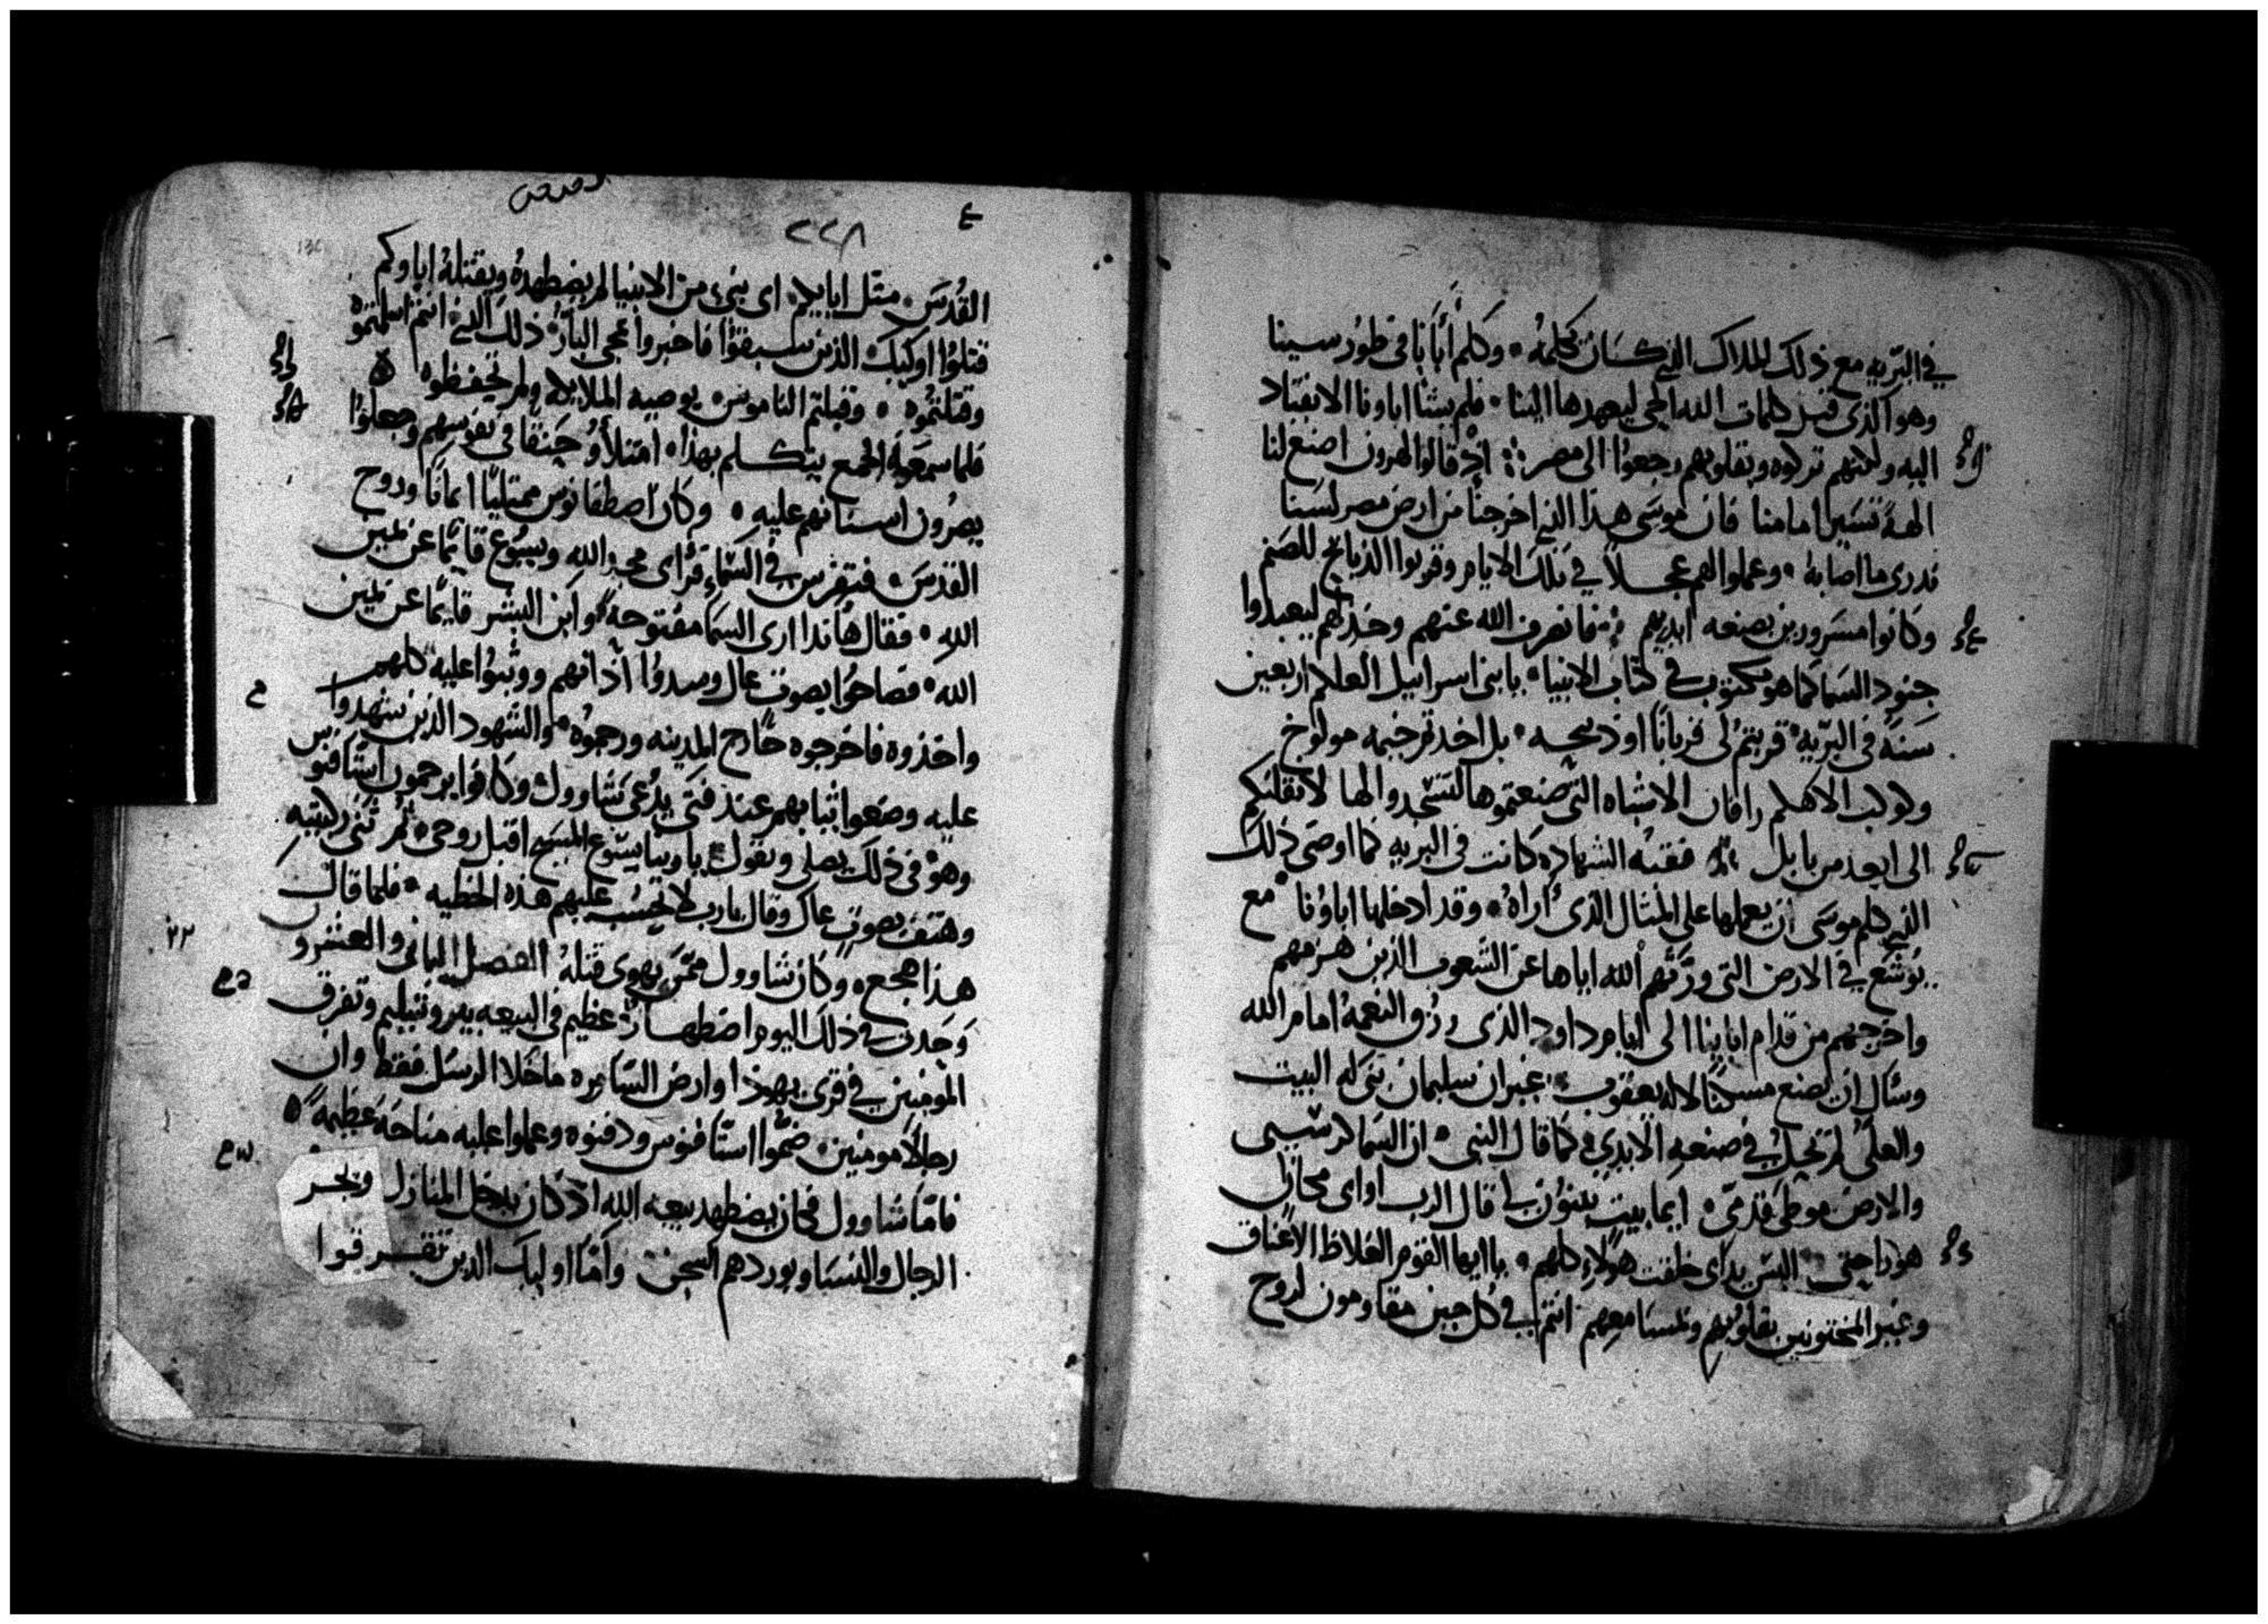 في البريه مع ذلك الملاك الذي كان يكلمه وكلم أبانا في طور سينا
وهو الذي قبل كلمات الله الحي ليعهدها الينا فلم يشا اباونا الانقياد
اليه ولكنهم تركوه وبقلوبهم رجعوا الى مصر اذ قالوا لهرون اصنع لنا
الهة تسير امامنا فان موسى هذا الذي اخرجنا من ارض مصر لسنا
ندري ما اصابه وعملوا لهم عجلا في تلك الايام وقربوا الذبايح للصنم
وكانوا مسرورين بصنعه ايديهم فانصرف الله عنهم وخذلهم ليعبدوا
جنود السما كما هو مكتوب في كتاب الانبيا يابني اسرائيل العلكم اربعين
سنه في البريه قربتم لي قربانا او ذبيحه بل اخذتم خيمه مولوخ
وكوكب الاهكم رافان الاشباه التي صنعتموها لتسجدوا لها لانقلنكم
الى ابعد من بابل فقبه الشهاده كانت في البريه كما اوصى ذلك
الذي كلم موسى ان يعملها على المثال الذي أراه وقد ادخلها اباونا مع
يوشع في الارض التي ورثهم الله اياها عن الشعوب الذين هزمهم
واخرجهم من قدام ابايينا الى ايام داود الذي رزق النعمه امام الله
وسال ان يصنع مسكنا لاله يعقوب غير ان سليمان بنى له البيت
والعلي لم يحل في صنعه الايدي كما قال النبي ان السما كرسيي
والارض موطى قدمي ايما بيت تبنون لي قال الرب او اي مكان
هو راحتي اليس يداي خلقت هولاء كلهم يا ايها القوم الغلاظ الاعناق
وغير المختونين بقلوبهم ومسامعهم انتم في كل حين مقاومون لروح
٢٢٨
القدس مثل ابايكم اي نبي من الانبيا لم يضطهده ويقتله اباوكم
قتلوا اوليك الذين سبقوا فاخبروا بمجي البار ذلك الذي انتم اسلمتموه
وقتلتموه وقبلتم الناموس بوصيه الملايكه ولم تحفظوه
فلما سمعوه الجمع يتكلم بهذا امتلأو حنقا في نفوسهم وجعلوا
يصرون اسنانهم عليه وكان اصطفانوس ممتليا ايمانا وروح
القدس فتفرس في السماء فرأى مجد الله ويسوع قايما عن يمين
الله فقال هانذا ارى السما مفتوحة وابن البشر قايما عن يمين
الله فصاحوا بصوت عال وسدوا آذانهم ووثبوا عليه كلهم
واخذوه فاخرجوه خارج المدينه ورجموه والشهود الذين شهدوا
عليه وضعوا ثيابهم عند فتى يدعى شاوول وكانوا يرجمون استافنوس
وهو في ذلك يصلي ويقول ياربنا يسوع المسيح اقبل روحي ثم ثنى ركبتيه
وهتف بصوت عال وقال يارب لا تحسب عليهم هذه الخطيه فلما قال
هذا هجع وكان شاوول ممن يهوى قتله الفصل الثاني والعشرو
وحدث في ذلك اليوم اضطهاد عظيم في البيعه بيروشليم وتفرق
المومنين في قرى يهوذا وارض السامره ما خلا الرسل فقط وان
رجالا مومنين ضموا استافنوس ودفنوه وعملوا عليه مناحة عظيمة
فاما شاوول فكان يضطهد بيعه الله اذ كان يدخل المنازل ويجر
الرجال والنسا ويوردهم السجن وأما اوليك الدين تفرقوا